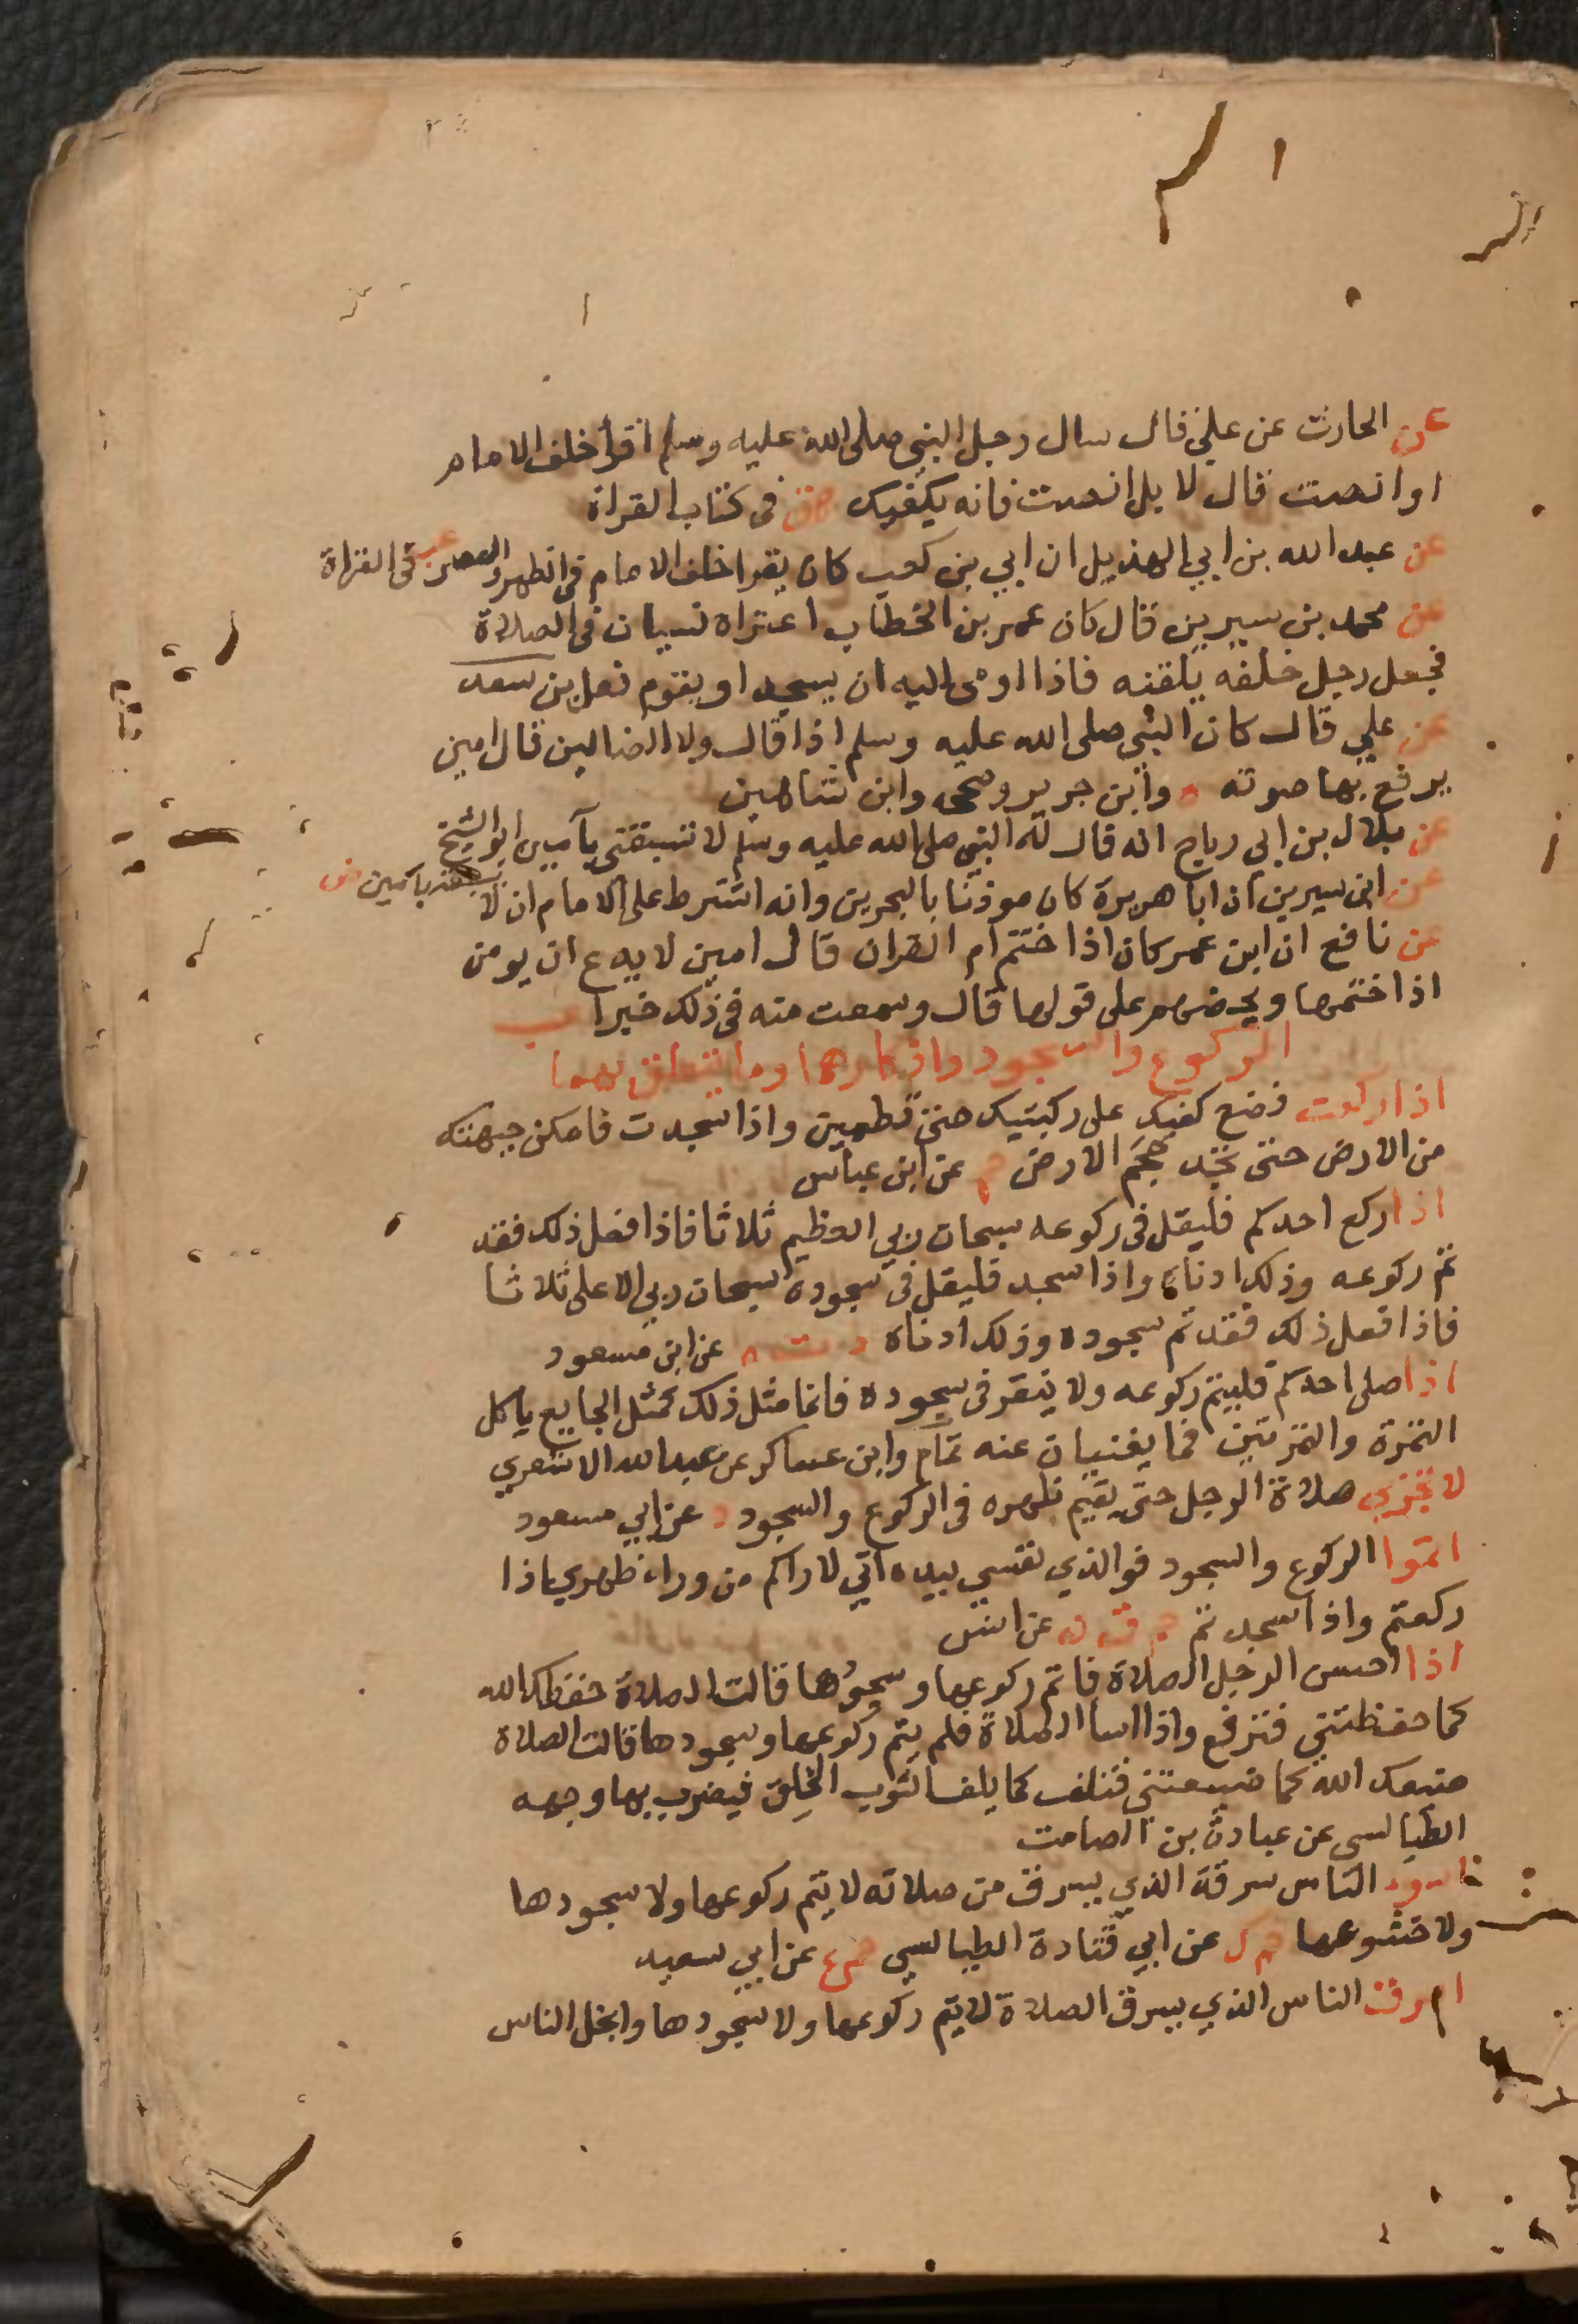 عن الحارث عن علي قال سال رجل النبي صلى الله عليه وسلم أقرأ خلف الامام
او انصت قال لا بل انصت فانه يكفيك هق في كتاب القراة
عن عبد الله بن ابي الهذيل ان ابي بن كعب كان يقرا خلف الامام في الظهر والعصر عب ق في القراة
عن محمد بن سيرين قال كان عمر بن الخطاب اعتراه نسيان في الصلاة
فجعل رجل خلفه يلقنه فاذا اومى اليه ان يسجد او يقوم فعل بن سعد
عن علي قال كان النبي صلى الله عليه وسلم اذا قال ولا الضالين قال امين
يرفع بها صوته ه وابن جرير وصححه وابن شاهين
عن بلال بن ابي رباح انه قال له النبي صلى الله عليه وسلم لا تسبقني بآمين ابو الشيخ
عن ابن سيرين ان ابا هريرة كان موذنا بالبحرين وانه اشترط على الامام ان لا يسبقه بامين ص
عن نافع ان ابن عمر كان اذا ختم ام القران قال امين لا يدع ان يومن
اذا ختمها ويحضهم على قولها قال وسمعت منه في ذلك خبرا عب
الركوع والسجود واذكارها وما يتعلق بهما
اذا ركعت فضع كفيك على ركبتيك حتى تطمين واذا سجدت فامكن جبهتك
من الارض حتى تجد حجم الارض حم عن ابن عباس
اذا ركع احدكم فليقل في ركوعه سبحان ربي العظيم ثلاثا فاذا فعل ذلك فقد
تم ركوعه وذلك ادناه واذا سجد فليقل في سجوده سبحان ربي الاعلى ثلاثا
فاذا فعل ذلك فقد تم سجوده وذلك ادناه د ت ه عن ابن مسعود
اذا صلى احدكم فليتم ركوعه ولا ينقر في سجوده فانما مثل ذلك كمثل الجايع ياكل
التمرة والتمرتين فما يغنيان عنه تمام وابن عساكر عن عبد الله الاشعري
لا تجزي صلاة الرجل حتى يقيم ظهره في الركوع والسجود د عن ابي مسعود
اتموا الركوع والسجود فوالذي نفسي بيده اني لاراكم من وراء ظهري اذا
ركعتم واذا سجدتم حم ق ن عن انس
اذا احسن الرجل الصلاة فاتم ركوعها وسجودها قالت الصلاة حفظك الله
كما حفظتني فترفع واذا اسا الصلاة فلم يتم ركوعها وسجودها قالت الصلاة
ضيعك الله كما ضيعتني فتلف كما يلف الثوب الخلق فيضرب بها وجهه
الطيالسي عن عبادة بن الصامت
الناس سرقة الذي يسرق من صلاته لا يتم ركوعها ولا سجودها
ولا خشوعها حم ك عن ابي قتادة الطيالسي حم ع عن ابي سعيد
اسرق الناس الذي يسرق الصلاة لا يتم ركوعها ولا سجودها وابخل الناس